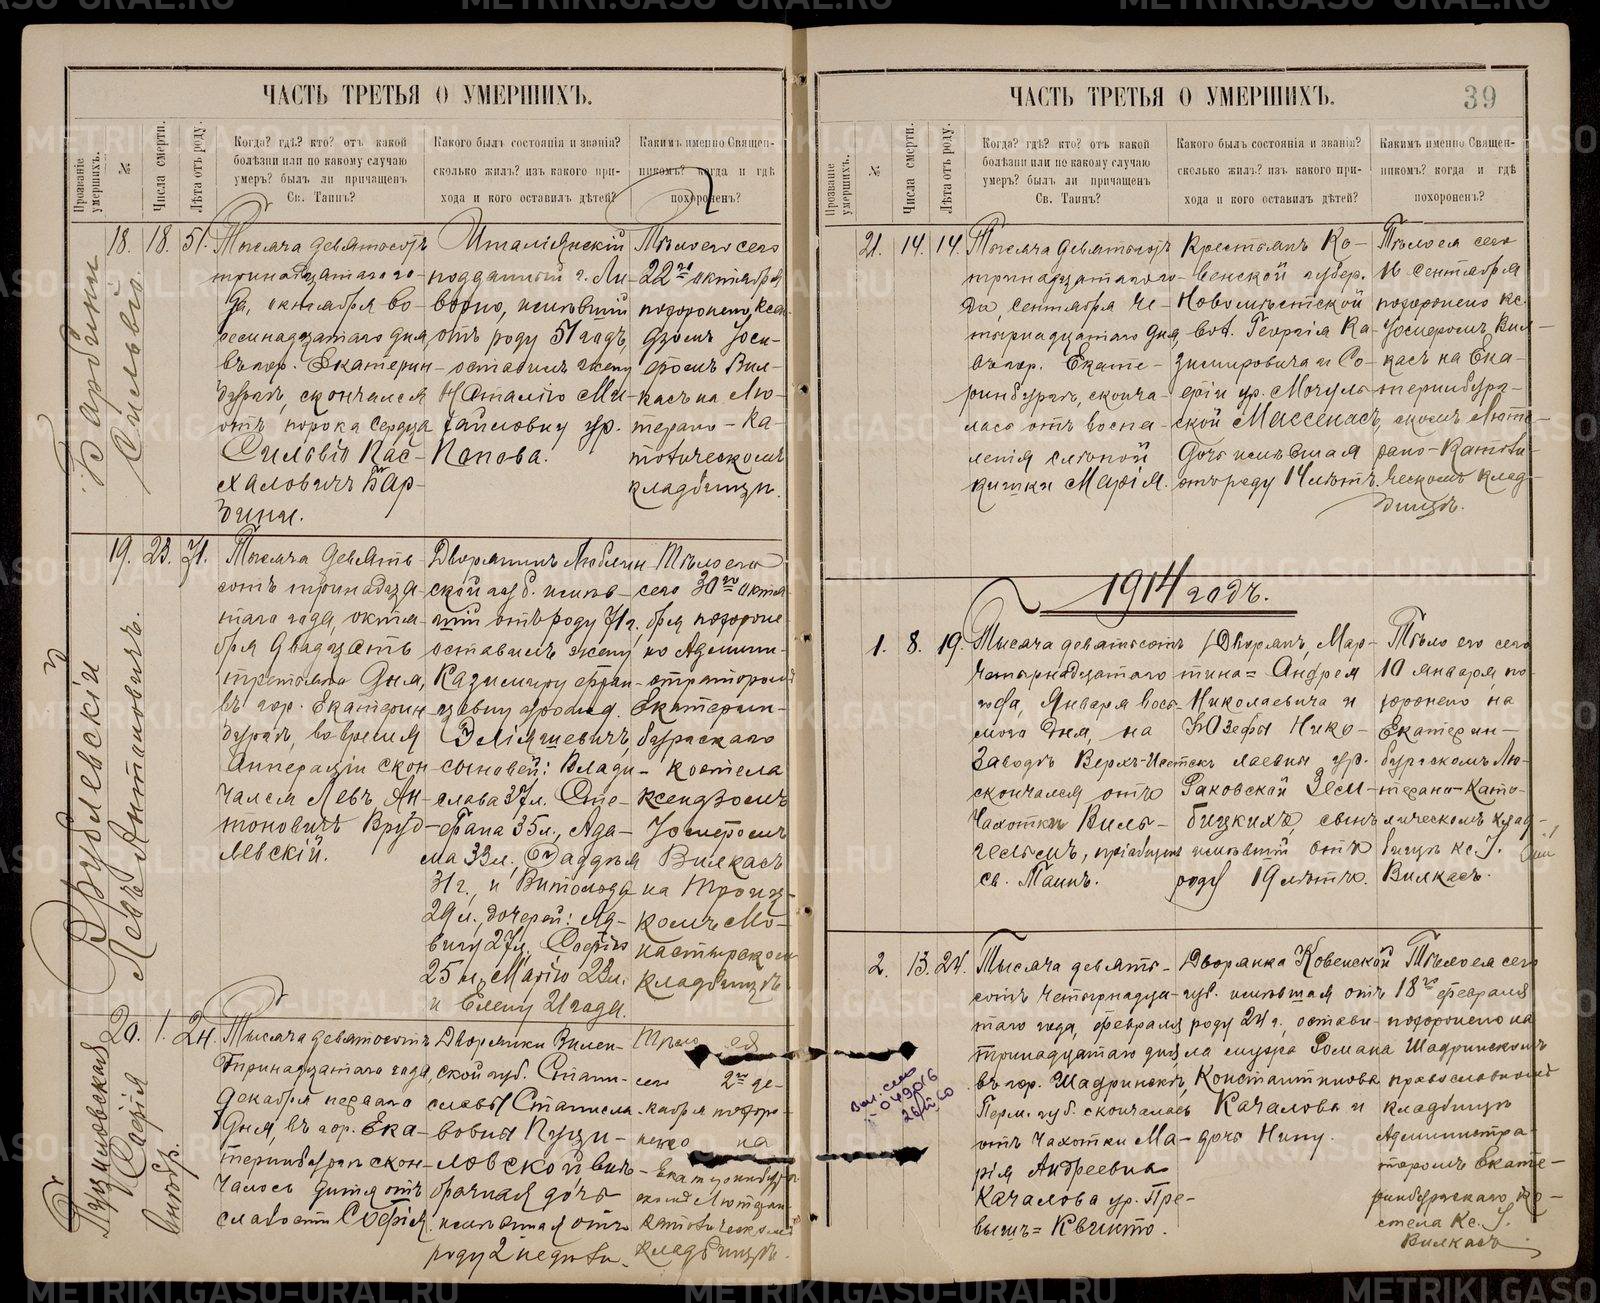 ЧАСТЬ ТРЕТЬЯ О УМЕРШИХЪ.
Прозваніе умершихъ.
№
Числа смерти.
Лѣта отъ роду.
Когда? гдѣ? кто? отъ какой
болѣзни или по какому случаю
умеръ? былъ ли причащенъ
Св. Таинъ?
Какого былъ состоянія и званія?
сколько жилъ? изъ какого при-
хода и кого оставилъ дѣтей?
Какимъ именно Священ-
никомъ? когда и гдѣ
похороненъ?
Барбини
Сильвіо.
18. 18. 51.
Тысяча девятьсотъ
тринадцатаго го-
да, октября во-
семнадцатаго дня,
въ гор. Екатерин-
бургѣ, скончался
отъ порока сердца
Сильвіо Пас-
халовичъ Бар-
бини.
Италіянскій
подданный г. Ли-
ворно, имѣвшій
отъ роду 51 годъ,
оставилъ жену
Наталію Ми-
хайловну ур.
Попова.
Тѣло его сего
22го октября
похоронено, ксен-
дзомъ Іоси-
фомъ Вил-
касъ на Лю-
терано-Ка-
толическомъ
кладбищѣ.
Врублевскій
Левъ Антоновичъ.
19. 23. 71.
Тысяча девять
сотъ тринадца-
таго года, октя-
бря двадцать
третьяго дня,
въ гор. Екатерин-
бургѣ, во время
операціи скон-
чался Левъ Ан-
тоновичъ Вруб-
левскій.
Дворянинъ Люблин-
ской губ. имѣв-
шій отъ роду 71 г.,
оставилъ жену
Казимиру Фран-
цевну урожд.
Эліяшевичъ,
сыновей: Влади-
слава 37 л. Сте-
фана 35 л., Ада-
ма 33 л., Фаддея
31 г., и Витольда
29 л., дочерей: Яд-
вигу 27 л., Софію
25 л., Марію 23 л.
и Елену 21 года.
Тѣло его
сего 30го октя-
бря похороне-
но Админи-
страторомъ
Екатерин-
бургскаго
костела
ксендзомъ
Іосифомъ
Вилкасъ
на Троиц-
комъ Мо-
настырскомъ
кладбищѣ
Пузиновская
Софія
внѣбр.
20. 1. 2 н.
Тысяча девятьсотъ
тринадцатаго года,
декабря перваго
дня, въ гор. Ека-
теринбургѣ скон-
чалось дитя отъ
слабости Софія.
Дворянки Вилен-
ской губ. Стани-
славы Станисла-
вовны Пузи-
новской внѣ-
брачная дочь
имѣвшая отъ
роду 2 недѣли.
Тѣло ея
сего 2го де-
кабря похоро-
нено на
Екатеринбург-
скомъ Лютеран-
католическомъ
кладбищѣ.
ЧАСТЬ ТРЕТЬЯ О УМЕРШИХЪ.
39
Прозваніе умершихъ.
№
Числа смерти.
Лѣта отъ роду.
Когда? гдѣ? кто? отъ какой
болѣзни или по какому случаю
умеръ? былъ ли причащенъ
Св. Таинъ?
Какого былъ состоянія и званія?
сколько жилъ? изъ какого при-
хода и кого оставилъ дѣтей?
Какимъ именно Священ-
никомъ? когда и гдѣ
похороненъ?
21. 14. 14.
Тысяча девятьсотъ
тринадцатаго го-
да, сентября че-
тырнадцатаго дня,
въ гор. Екате-
ринбургѣ, сконча-
лась отъ воспа-
ленія слѣпой
кишки Марія.
Крестьянъ Ко-
венской губер.
Новомѣстской
вол. Георгія Ка-
зимировича и Со-
фіи ур. Мочуль-
ской Массенасъ,
дочь имѣвшая
отъ роду 14 лѣтъ.
Тѣло ея сего
16 сентября
похоронено кс.
Іосифомъ Вил-
касъ на Ека-
теринбург-
скомъ Люте-
рано-Католи-
ческомъ клад-
бищѣ.
1914 годъ.
1. 8. 19.
Тысяча девятьсотъ
четырнадцатаго
года, Января вось-
мого дня, на
Заводѣ Верхъ-Исетскъ
скончался отъ
Чахотки Виль-
гельмъ, пріобщенъ
св. Таинъ.
Дворянъ, Мар-
тина= Андрея
Николаевича и
Юзефы Нико-
лаевны ур.
Раковской Зем-
бицкихъ, сынъ
имѣвшій отъ
роду 19 лѣтъ.
Тѣло его сего
10 января по-
хоронено на
Екатерин-
бургскомъ Лю-
терано-Като-
лическомъ клад-
бищѣ кс. І.
Вилкасъ.
2. 13. 24.
Тысяча девять-
сотъ четырнадца-
таго года, февраля
тринадцатаго дня
въ гор. Шадринскѣ,
Перм. губ. скончалась
отъ чахотки Ма-
рія Андреевна
Качалова ур. Пре-
вышъ= Квинто.
Дворянка Ковенской
губ. имѣвшая отъ
роду 24 г., остави-
ла мужа Романа
Константинова
Качалова и
дочь Нину.
Тѣло ея сего
18го февраля
похоронено на
Шадринскомъ
православномъ
кладбищѣ
Администра-
торомъ Екате-
ринбургскаго ко-
стела Кс. І.
Вилкасъ
METRIKI.GASO-URAL.RU